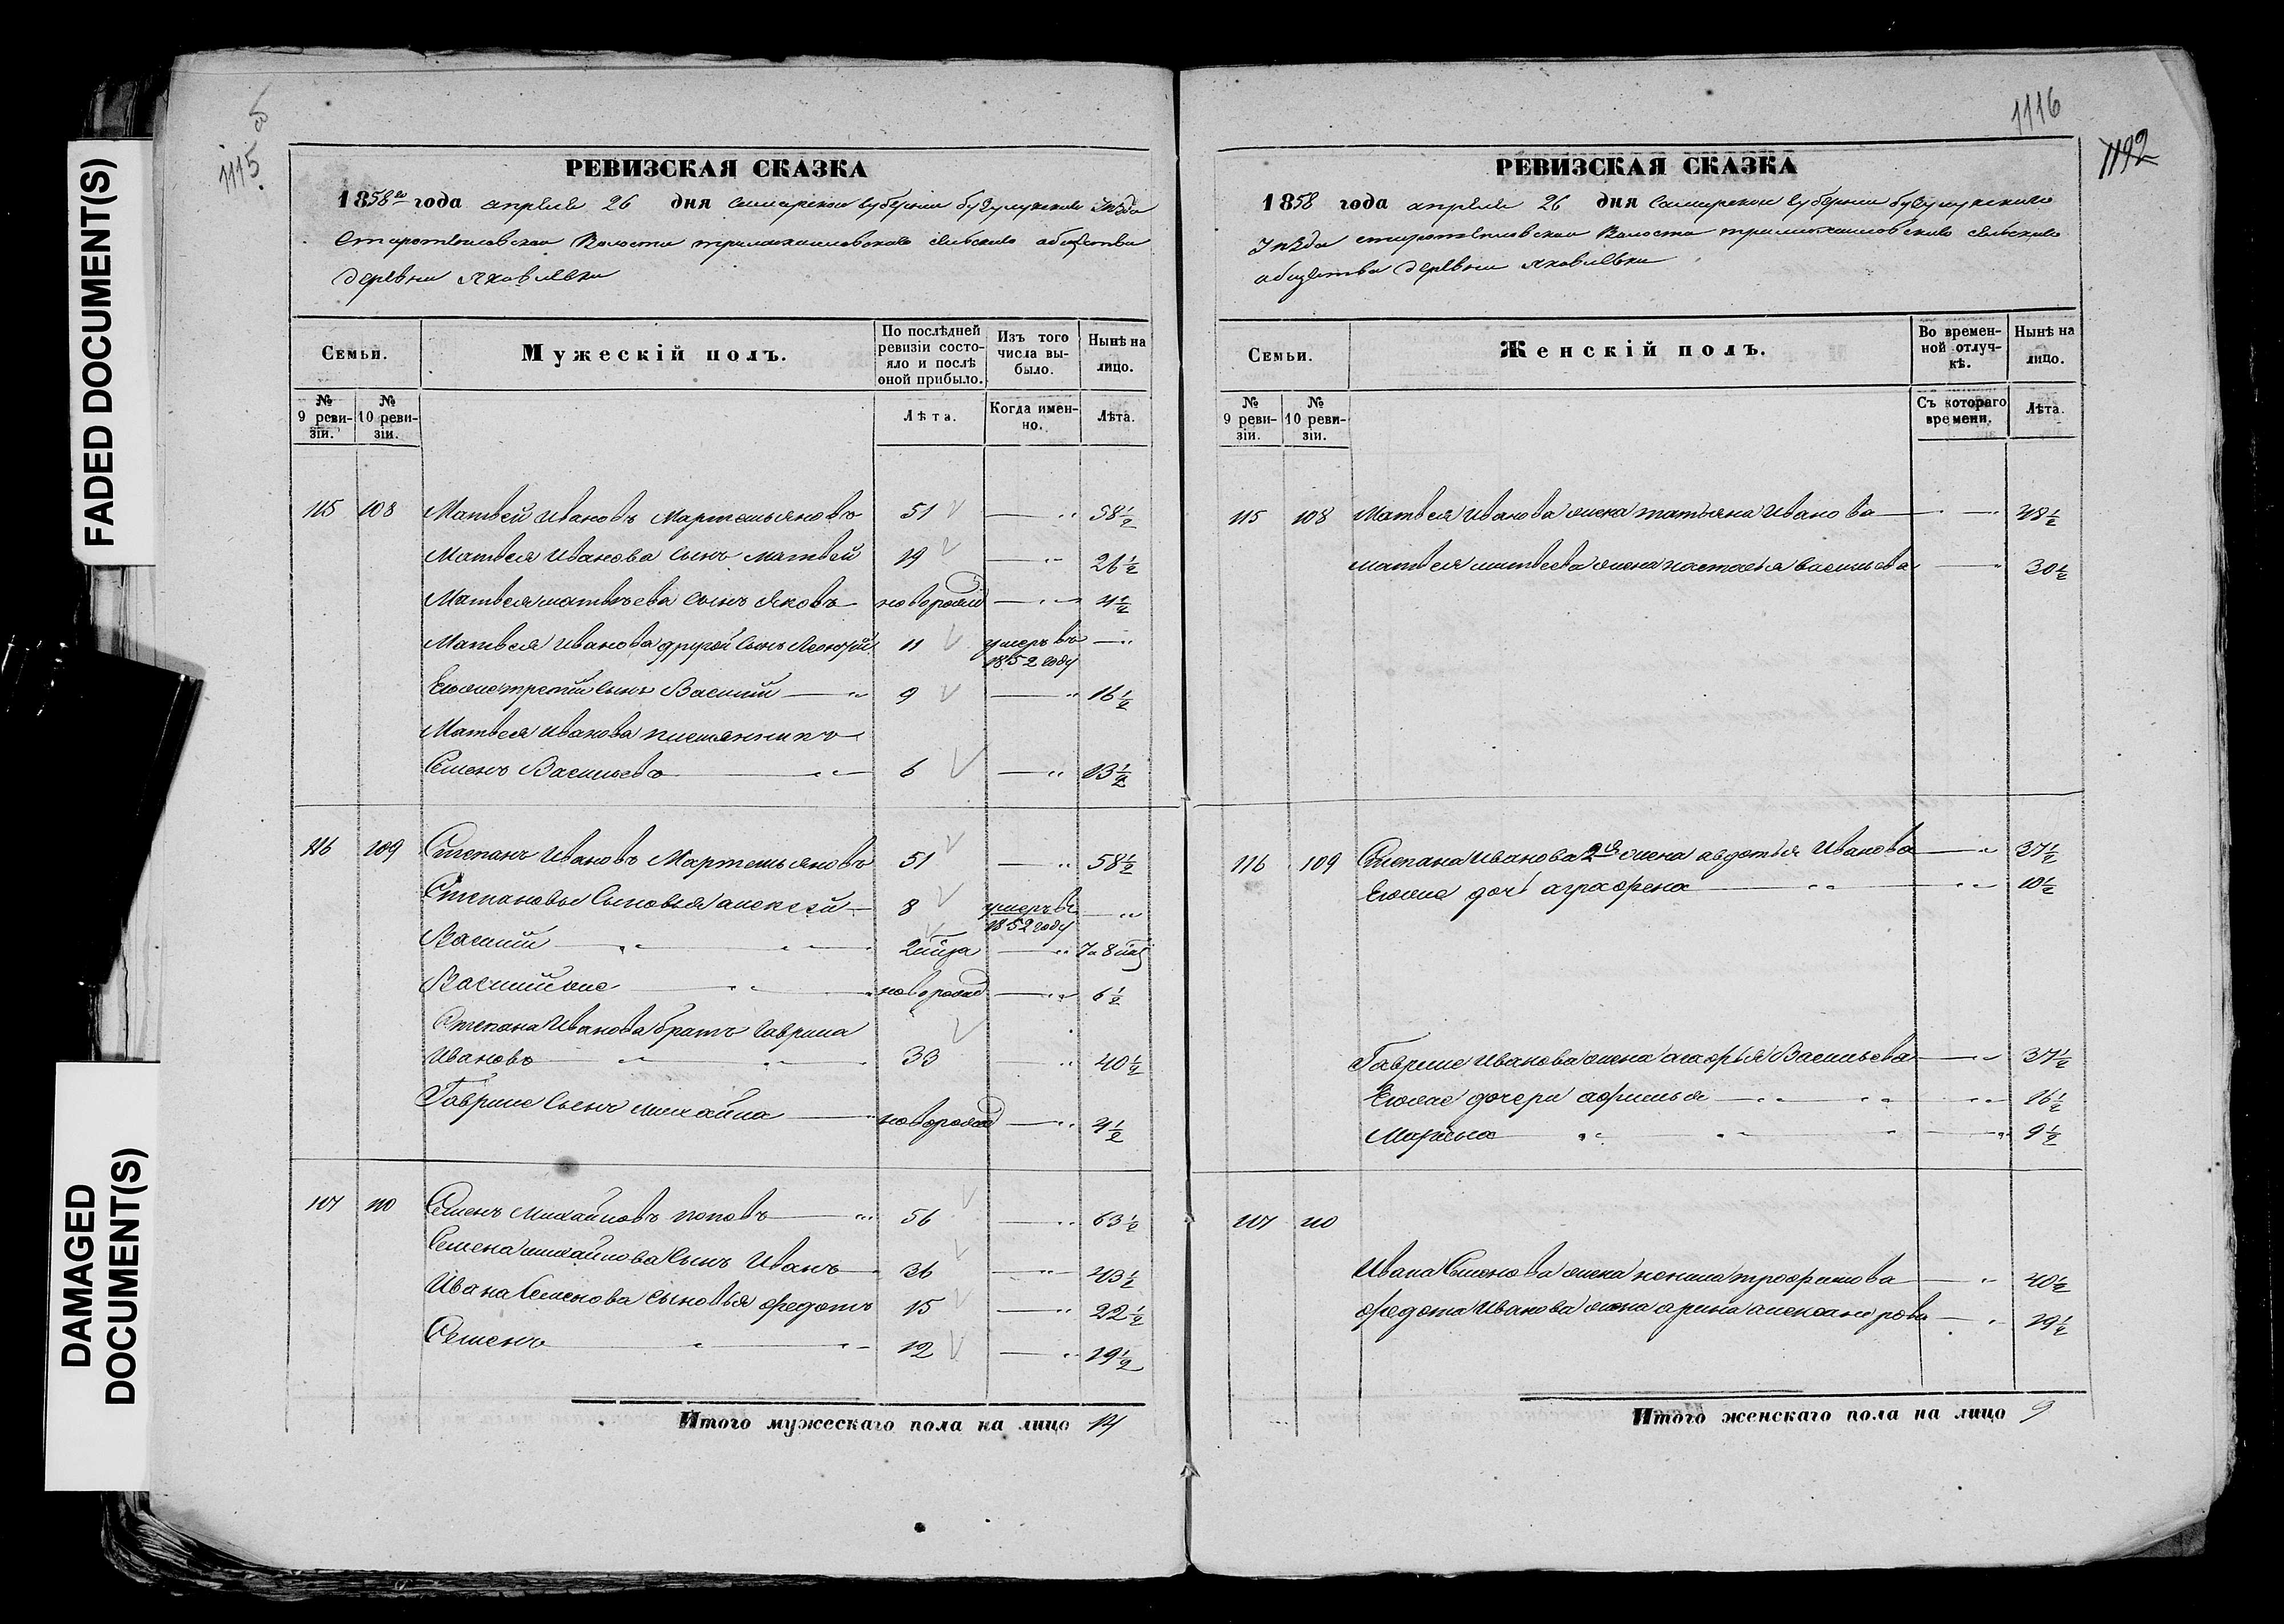 FADED DOCUMENT(S)
DAMAGED
DOCUMENT(S)
1115
РЕВИЗСКАЯ СКАЗКА
1858го года апреля 26 дня самарской губернии бузулукскаго уѣзда
деревни яковлевки
Семьи.
Мужескій полъ.
По послѣдней ревизіи состояло и послѣ оной прибыло.
Изъ того числа выбыло.
Нынѣ на лицо.
№ 9 ревизіи.
№ 10 ревизіи.
Лѣта.
Когда именно.
Лѣта.
115 108 Матвей Ивановъ Мартемьяновъ 51 — 58½
Матвея Иванова сынъ матвей 19 — 26½
Матвея матвѣева сынъ Яковъ новорожд — 4½
Матвея Иванова другой сынъ 11 умеръ въ 1852 году —
Егоже третий сынъ Василий — 9 — 16½
Матвея Иванова племянникъ
Семенъ Васильевъ — 6 — 13½
116 109 Степанъ Ивановъ Мартемьяновъ 51 — 58½
Степановы Сыновья алексей — 8 умеръ въ 1852 году —
Василий —
Василийже — новорожд — 6½
Степана Иванова братъ гаврила
Ивановъ — 33 — 40½
Гаврилы Сынъ михайла — новорожд — 4½
117 110 Семенъ Михайловъ поповъ — 56 — 63½
Семена михайлова Сынъ Иванъ — 36 — 43½
Ивана Семенова сыновья федотъ 15 — 22½
Семенъ — 12 — 19½
Итого мужескаго пола на лицо 14
1116
1192
РЕВИЗСКАЯ СКАЗКА
1858 года апреля 26 дня самарской губернии бузулукскаго
общества деревни яковлевки
Семьи.
Женскій полъ.
Во временной отлучкѣ.
Нынѣ на лицо.
№ 9 ревизіи.
№ 10 ревизіи.
Съ котораго времени.
Лѣта.
115 108 Матвея Иванова жена татьяна Иванова — 48½
матвея матвеева жена настасья васильева — 30½
116 109 Степана Иванова 2я жена авдотья Иванова — 37½
Егоже дочь аграфена — 10½
Гаврилы Иванова жена Васильева — 37½
Егоже дочери афимья — 16½
Марина — 9½
117 110
Ивана Семенова жена трофимова — 40½
федота Иванова жена арина александрова — 19½
Итого женскаго пола на лицо 9